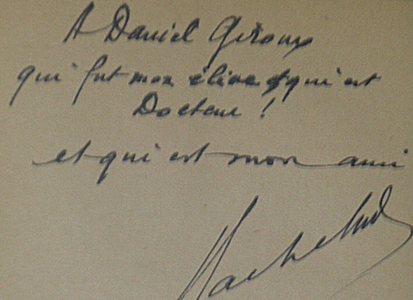 A Daniel Giroux
qui fut mon élève et qui est
Docteur !
et qui est mon ami
Bachelard